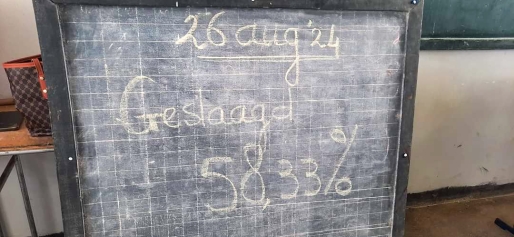 26 aug '24
Geslaagd
58,33%